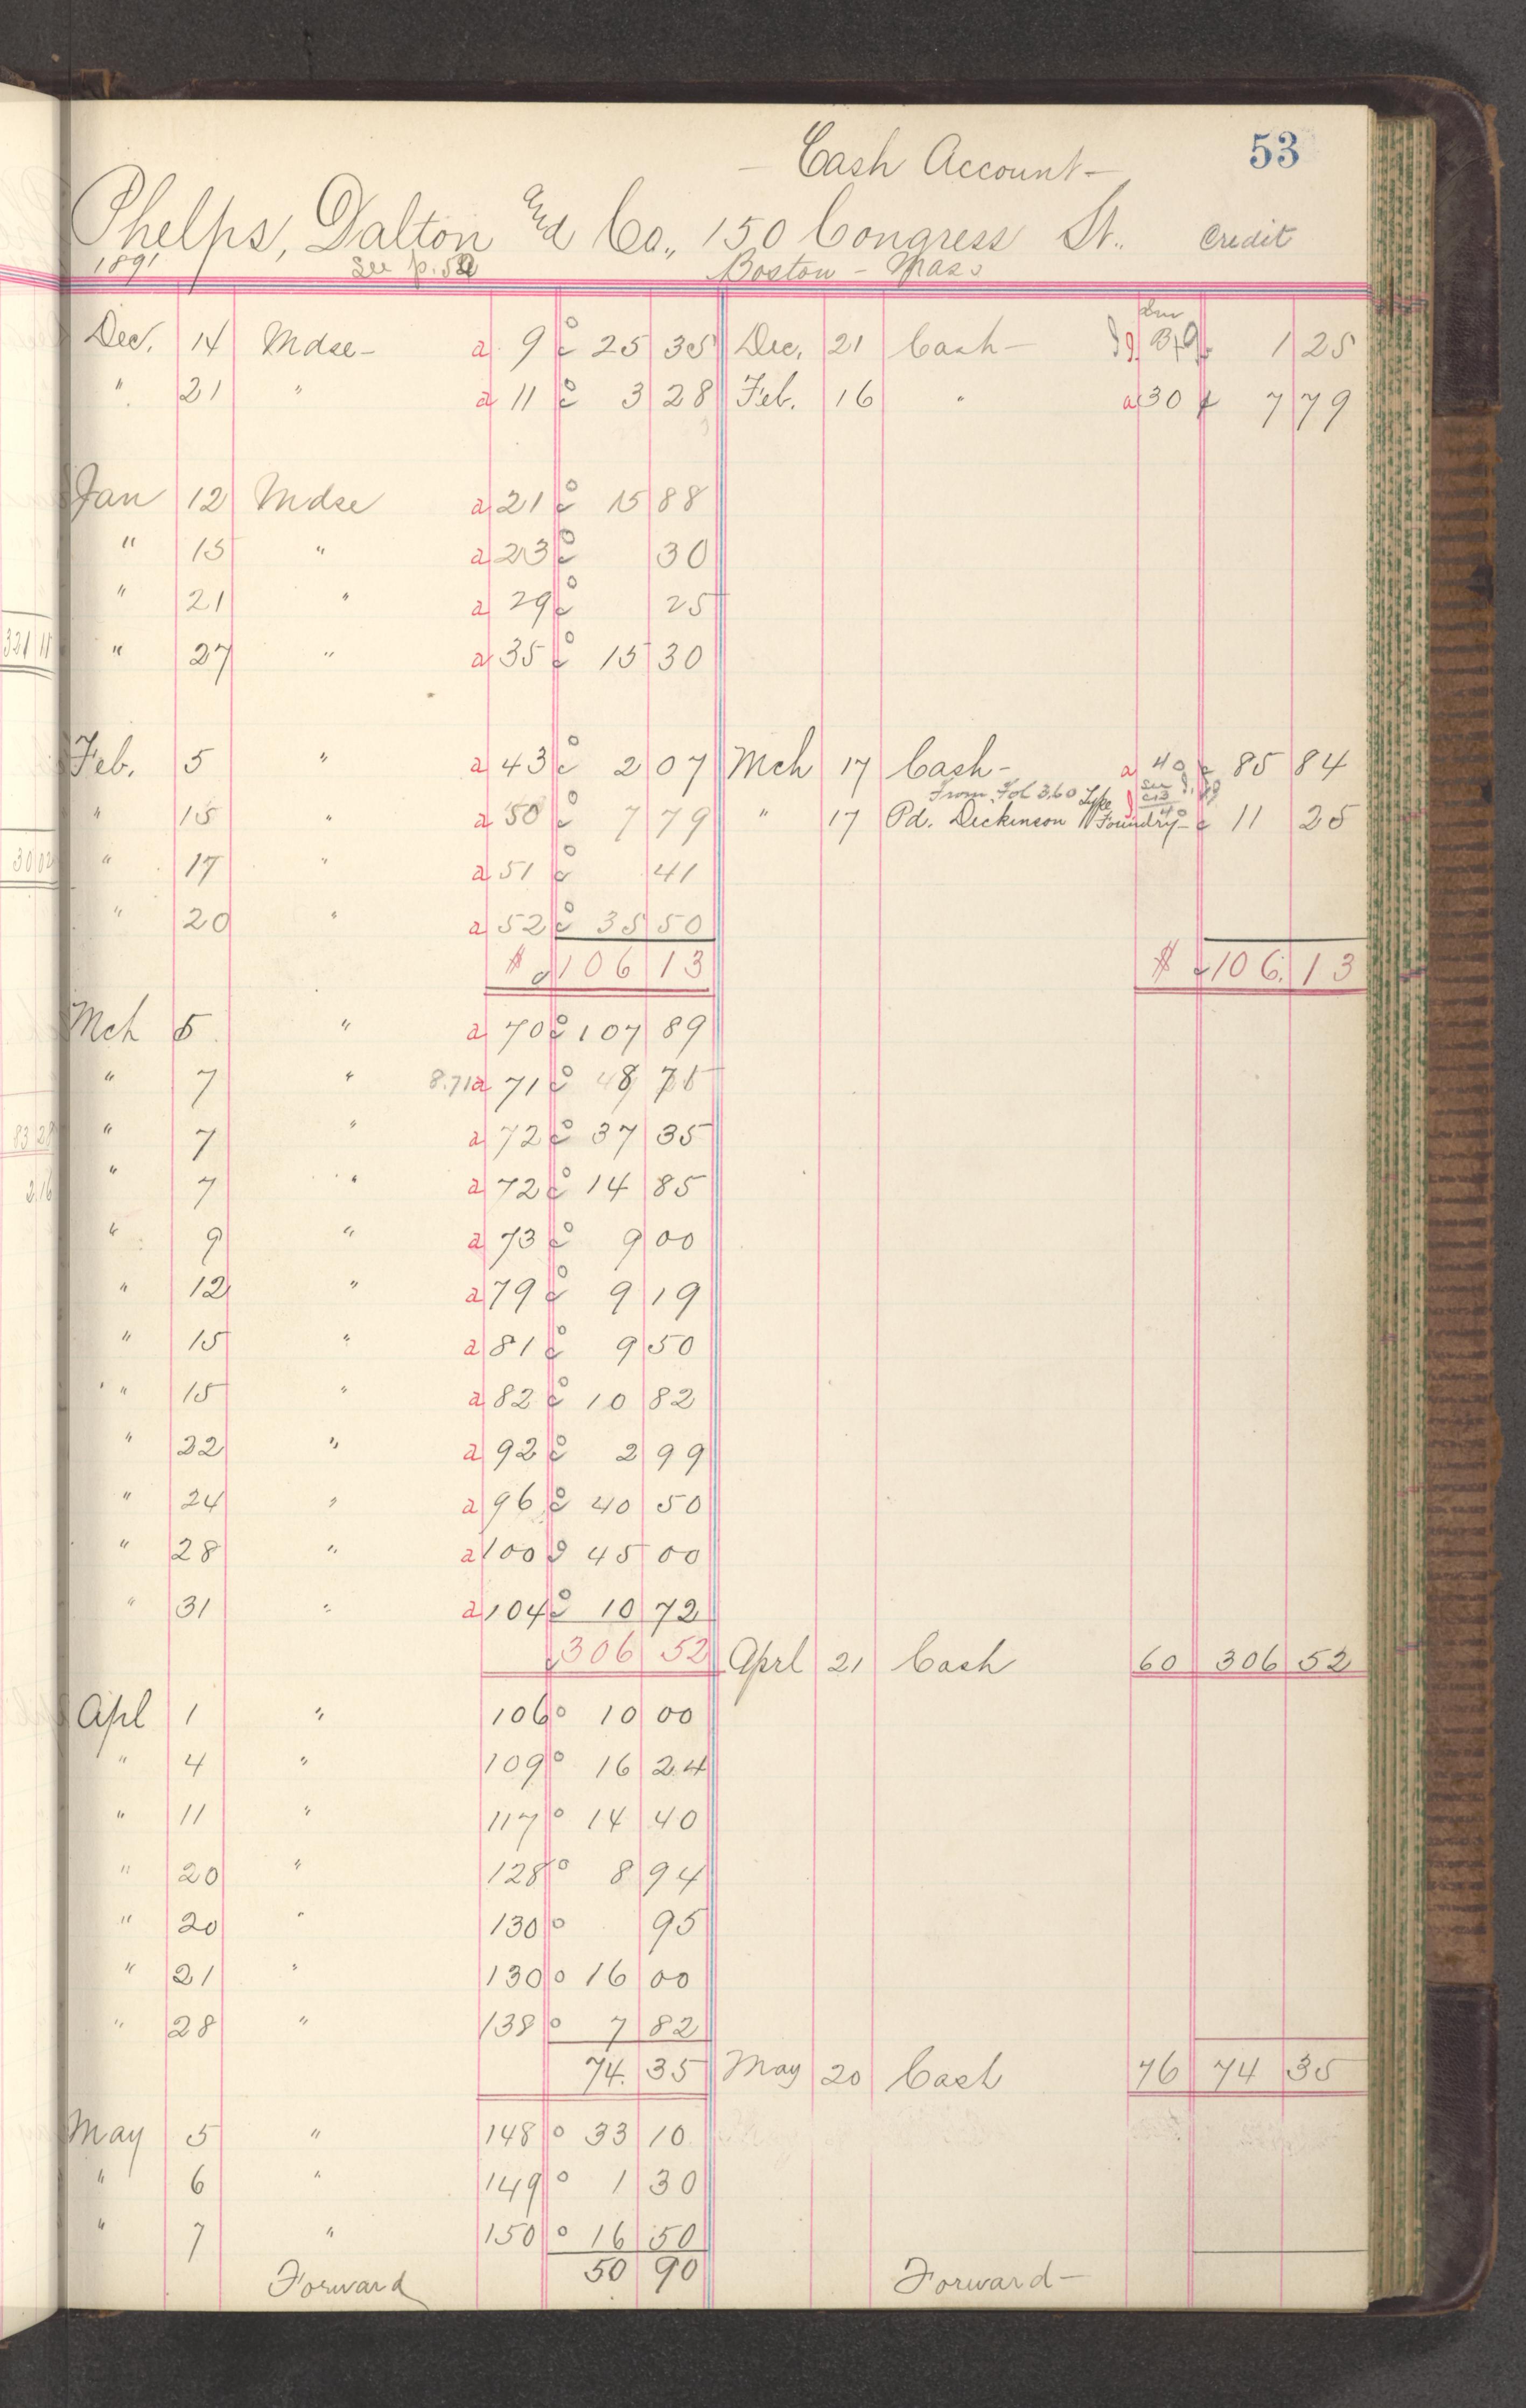 53
— Cash Account —
Phelps, Dalton and Co., 150 Congress St., Credit
1891 See p. 52 Boston - Mass
Dec. 14 Mdse - a 9 c 25 35 Dec. 21 Cash - 1 25
" 21 " a 11 c 3 28 Feb. 16 " a 30 c 7 79
Jan 12 Mdse a 21 c 15 88
" 15 " a 23 c 30
" 21 " a 29 c 25
321 11 " 27 " a 35 c 15 30
Feb. 5 " a 43 c 2 07 Mch 17 Cash - a 40 c 85 84
From Fol 360
" 15 " a 50 c 7 79 " 17 Pd. Dickinson Type Foundry - c 11 25
30 02 " 17 " a 51 c 41
" 20 " a 52 c 35 50
$ c 106 13 $ c 106. 13
Mch 5 " a 70 c 107 89
" 7 " 8.71 a 71 c 48 71
83 28 " 7 " a 72 c 37 35
2.16 " 7 " a 72 c 14 85
" 9 " a 73 c 9 00
" 12 " a 79 c 9 19
" 15 " a 81 c 9 50
" 15 " a 82 c 10 82
" 22 " a 92 c 2 99
" 24 " a 96 c 40 50
" 28 " a 100 c 45 00
" 31 " a 104 c 10 72
c 306 52 Aprl 21 Cash 60 306 52
Apl 1 " 106 10 00
" 4 " 109 16 24
" 11 " 117 14 40
" 20 " 128 8 94
" 20 " 130 95
" 21 " 130 16 00
" 28 " 138 7 82
74. 35 May 20 Cash 76 74 35
May 5 " 148 33 10
" 6 " 149 1 30
" 7 " 150 16 50
50 90
Forward Forward -